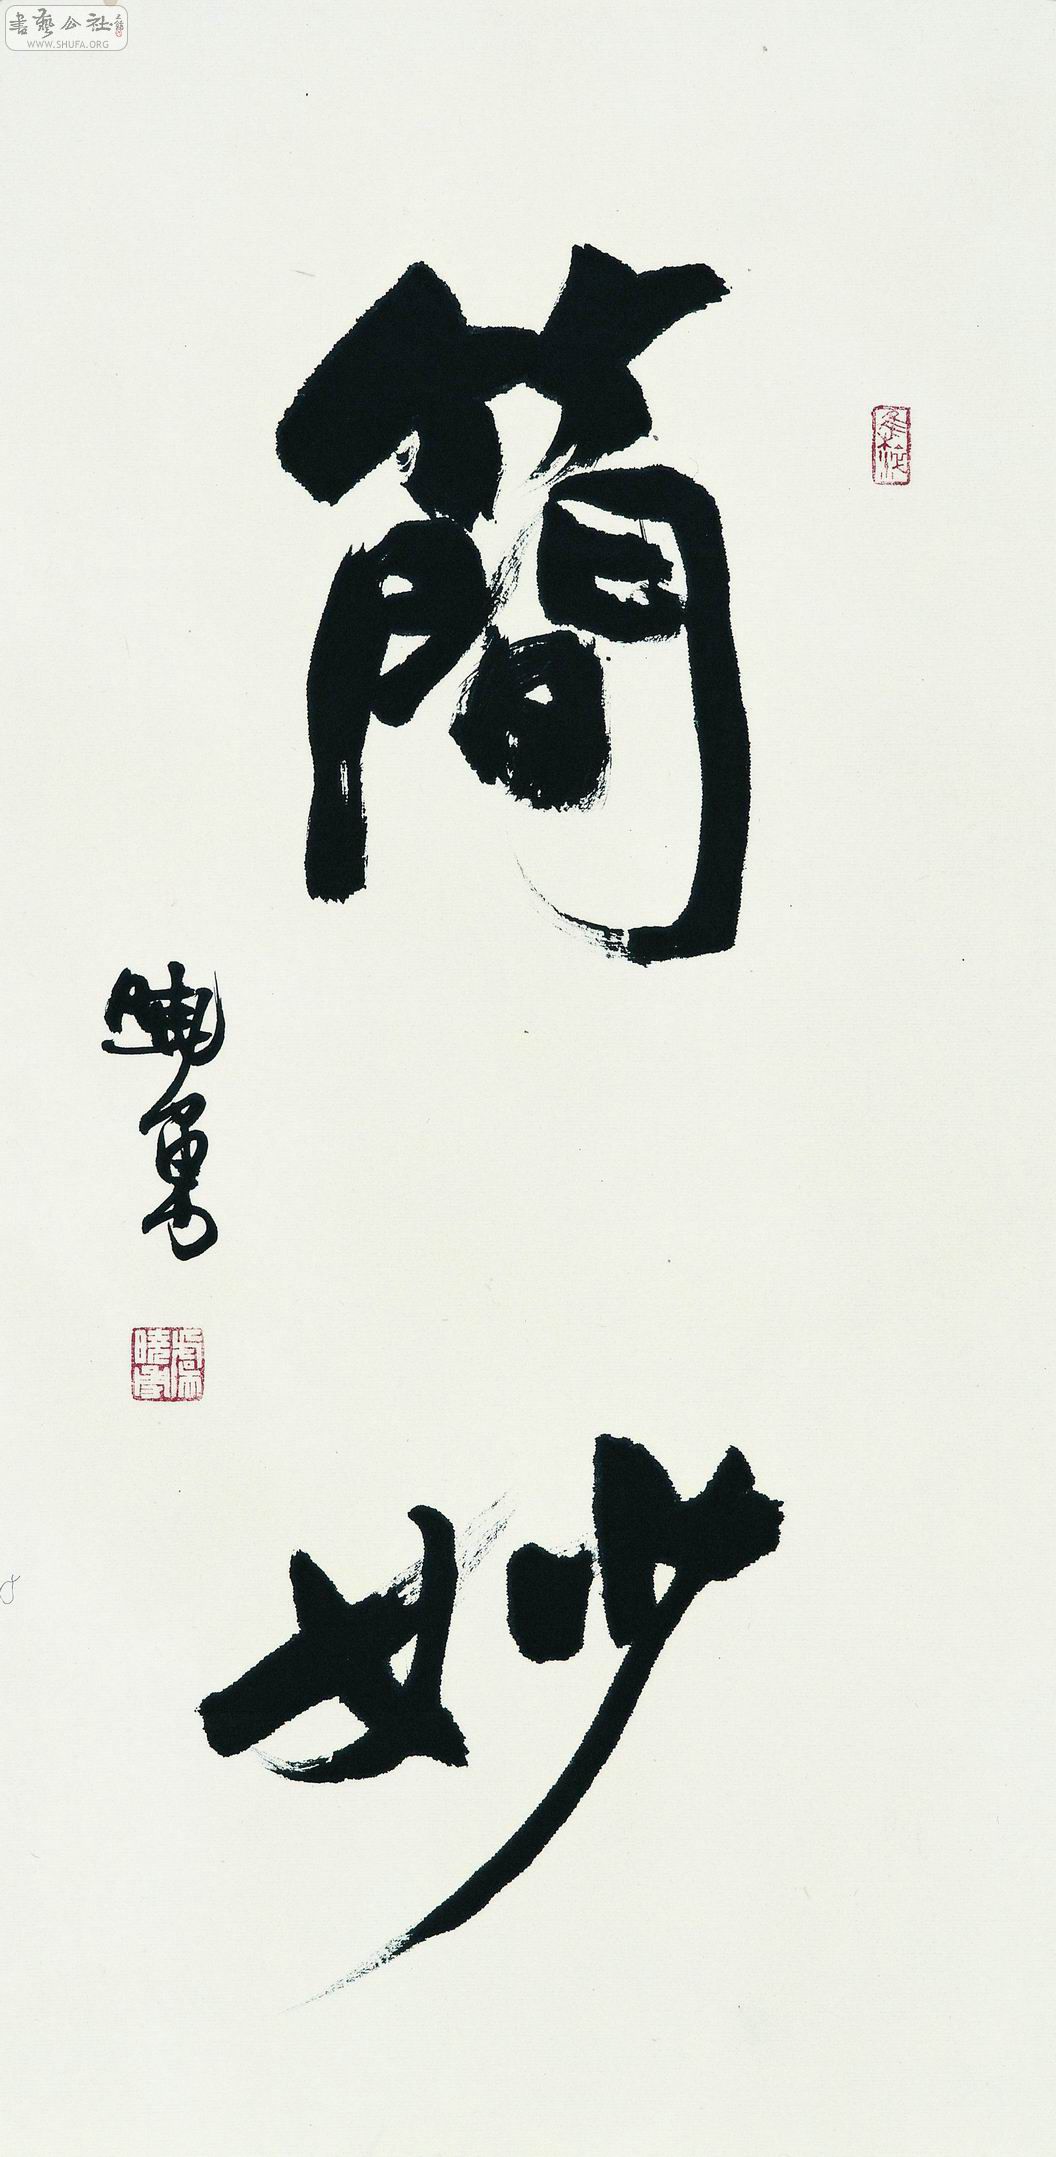 書藝公社
WWW.SHUFA.ORG
簡妙
曉勇